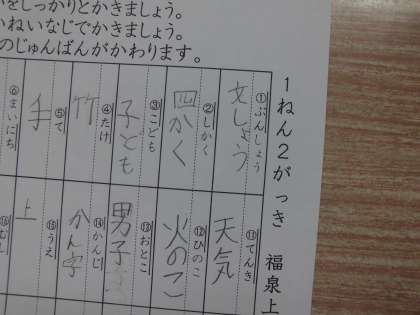 をしっかりとかきましょう。
ねいなじでかきましょう。
のじゅんばんがかわります。
1ねん2がっき 福泉上
①ぶんしょう
文しょう
②しかく
四かく
③こども
子ども
④たけ
竹
⑤て
手
⑥まいにち
⑪てんき
天気
⑫ひのこ
火のこ
⑬おとこ
男子
⑭かんじ
かん字
⑮うえ
上